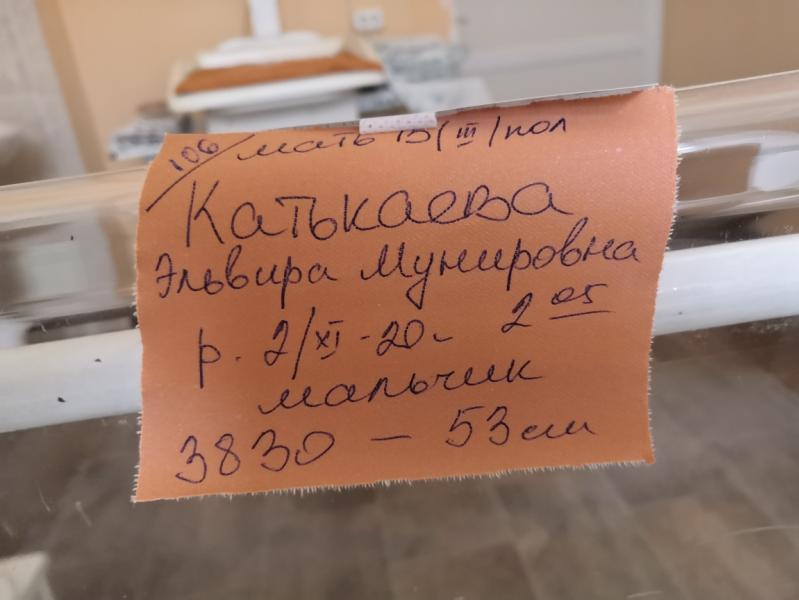 106 мать В(III) пол
Катькаева
Эльвира Мунировна
р. 2/XI-20г 2 05
мальчик
3830 - 53 см